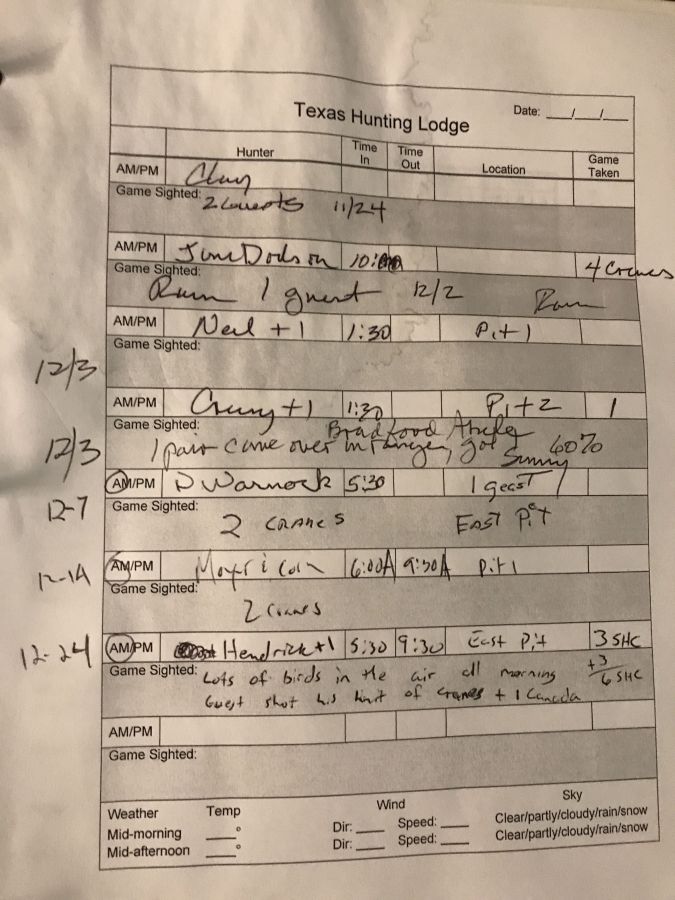 Texas Hunting Lodge
Date: __/__/__
Hunter Time In Time Out Location Game Taken
AM/PM Clay
Game Sighted: 2 Guests 11/24
AM/PM Dodson 10:00 4 Cranes
Game Sighted:
Rain 1 guest 12/2 Rain
AM/PM Neil +1 1:30 Pit 1
Game Sighted:
12/3
AM/PM +1 1:30 Pit 2 1
Game Sighted: Bradford
12/3 1 pair came over in range, got 60%
Sunny
AM/PM D Warnock 5:30 1 gest
12-7 Game Sighted:
2 CRANES EAST Pit
12-14 AM/PM 6:00A 9:30A Pit 1
Game Sighted:
2 Cranes
12-24 AM/PM Hendrick +1 5:30 9:30 East Pit 3 SHC
Game Sighted: Lots of birds in the air all morning +3
Guest shot his limit of Cranes + 1 Canada 6 SHC
AM/PM
Game Sighted:
Weather Temp Wind Sky
Mid-morning ___° Dir: ___ Speed: ___ Clear/partly/cloudy/rain/snow
Mid-afternoon ___° Dir: ___ Speed: ___ Clear/partly/cloudy/rain/snow